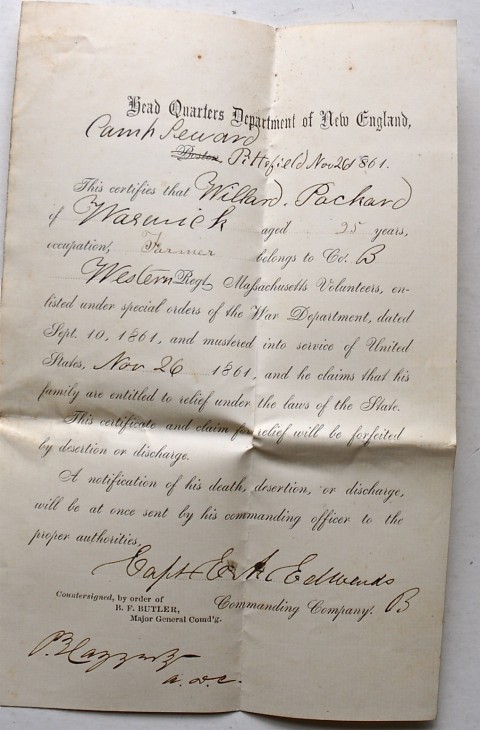 Head Quarters Department of New England,
Camp Seward
Boston, Pittsfield Nov 26 1861.
This certifies that Willard. Packard
of Warwick aged 25 years,
occupation, Farmer belongs to Co. B
Western Regt Massachusetts Volunteers, en-
listed under special orders of the War Department, dated
Sept. 10, 1861, and mustered into service of United
States, Nov 26 1861, and he claims that his
family are entitled to relief under the laws of the State.
This certificate and claim for relief will be forfeited
by desertion or discharge.
A notification of his death, desertion, or discharge,
will be at once sent by his commanding officer to the
proper authorities.
Capt E. A. Edwards
Commanding Company. B
Countersigned, by order of
B. F. BUTLER,
Major General Comd'g.
A. D. C.